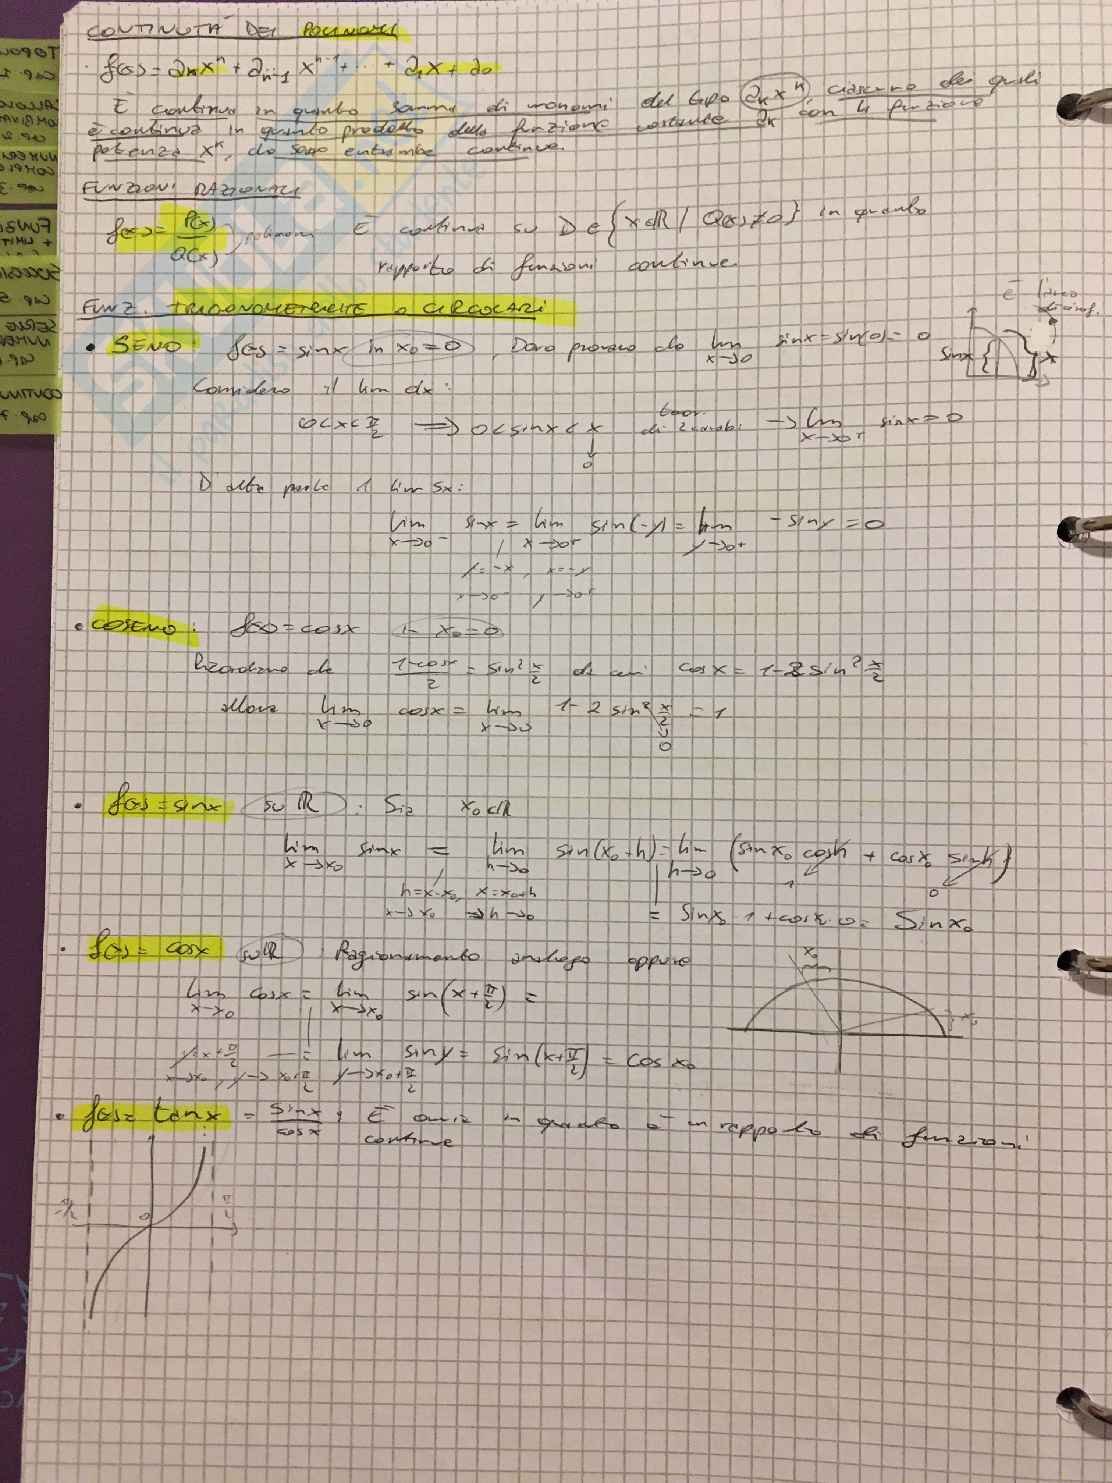 CONTINUITÀ DEI POLINOMI
· f(x) = aₙxⁿ + aₙ₋₁ xⁿ⁻¹ + ... + a₁x + a₀
È continua in quanto somma di monomi del tipo aₖxᵏ ciascuno dei quali
è continua in quanto prodotto della funzione costante aₖ con la funzione
potenza xᵏ, che sono entrambe continue.
FUNZIONI RAZIONALI
f(x) = P(x)/Q(x) polinomi È continua su D = {x∈ℝ | Q(x) ≠ 0} in quanto
rapporto di funzioni continue.
FUNZ. TRIGONOMETRICHE o CIRCOLARI
è l'arco
• SENO: f(x) = sinx in x₀=0, Devo provare che lim x→0 sinx = sin(0) = 0
sinx x
Considero il lim dx:
0<x<π/2 ⟹ 0<sinx<x teor. di 2 carab. → lim x→0⁺ sinx = 0
0
D'altra parte il lim sx:
lim x→0⁻ sinx = lim x→0⁺ sin(-y) = lim y→0⁺ -siny = 0
y=-x, x=-y
x→0⁻ y→0⁺
• COSENO: f(x) = cosx in x₀=0
Ricordiamo che 1-cosx/2 = sin² x/2 da cui cosx = 1-2sin² x/2
allora lim x→0 cosx = lim x→0 1-2 sin² x/2 = 1
0
• f(x) = sinx su ℝ: Sia x₀∈ℝ
lim x→x₀ sinx = lim h→0 sin(x₀+h) = lim h→0 (sinx₀ cosh + cosx₀ sinh)
h=x-x₀, x=x₀+h 1 0
x→x₀ ⟹ h→0 = sinx₀ 1 + cosx₀ · 0 = sinx₀
• f(x) = cosx su ℝ Ragionamento analogo oppure
x₀
lim x→x₀ cosx = lim x→x₀ sin(x+π/2) =
x₀
y=x+π/2 = lim y→x₀+π/2 siny = sin(x+π/2) = cosx₀
x→x₀, y→x₀+π/2
• f(x) = tanx = sinx/cosx; È in quanto è un rapporto di funzioni
continue
-π/2 0 π/2